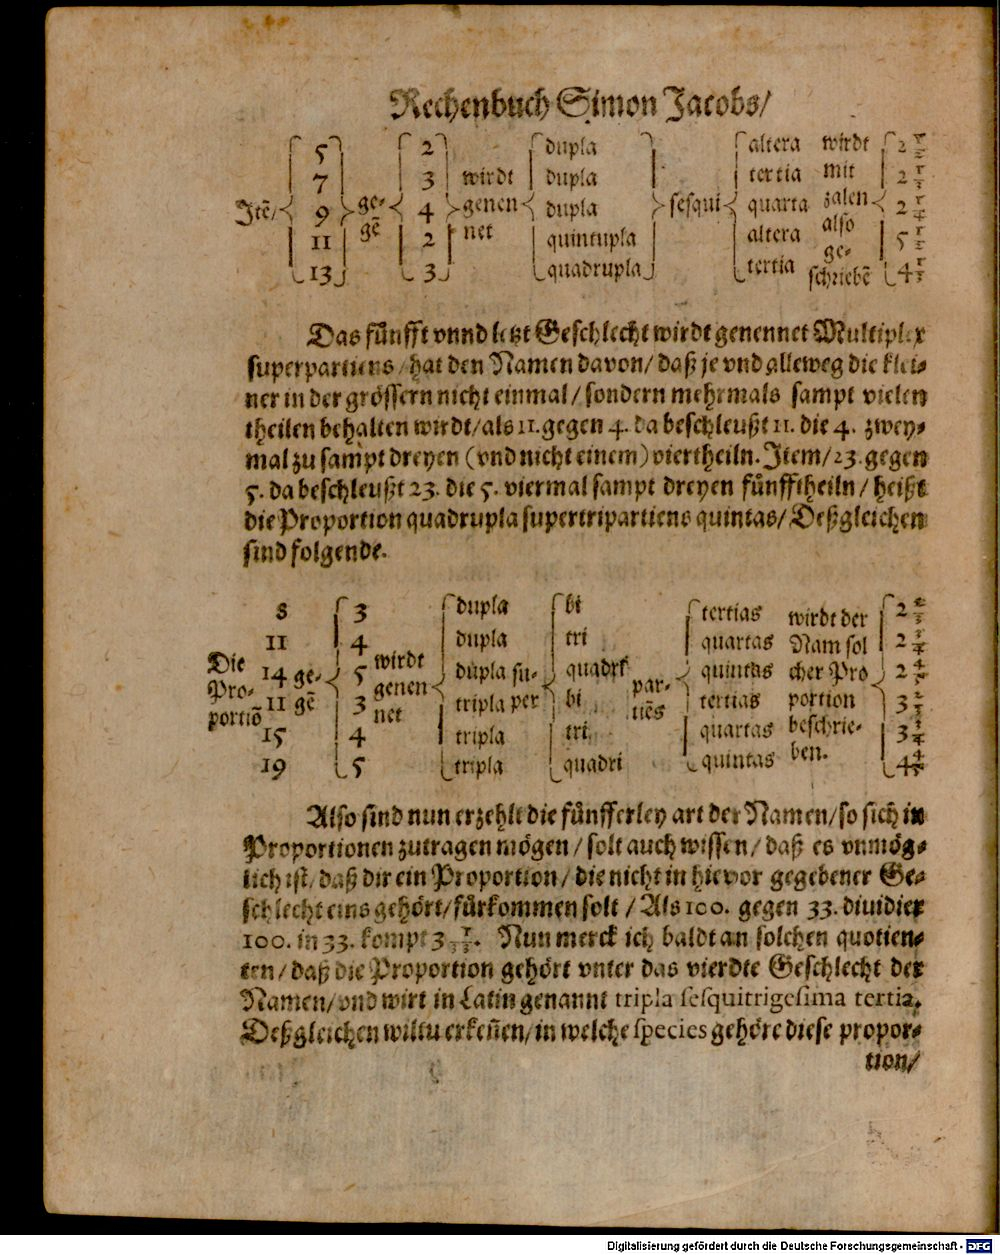 Rechenbuch Simon Jacobs/
5 2 dupla altera wirdt 2 1/2
7 3 wirdt dupla tertia mit 2 1/3
Itē/ 9 ge- 4 genen dupla sesqui quarta zalen 2 1/4
11 gē 2 net quintupla altera also 5 1/2
13 3 quadrupla tertia ge- schriebē 4 1/3
Das fünfft vnnd letzt Geschlecht wirdt genennet Multiplex
superpartiens/ hat den Namen davon/ daß je vnd alleweg die klei-
ner in der grössern nicht einmal/ sondern mehrmals sampt vielen
theilen behalten wirdt/ als 11. gegen 4. da beschleußt 11. die 4. zwey-
mal zu sampt dreyen (vnd nicht einem) viertheiln. Item/ 23. gegen
5. da beschleußt 23. die 5. viermal sampt dreyen fünfftheiln/ heißt
die Proportion quadrupla supertripartiens quintas/ Deßgleichen
sind folgende.
8 3 dupla bi tertias wirdt der 2 2/3
11 4 dupla tri quartas Nam sol 2 3/4
Die 14 ge- 5 wirdt dupla su- quadri par- quintas cher Pro 2 4/5
Pro- 11 gē 3 genen tripla per bi tiēs tertias portion 3 2/3
portiō 15 4 net tripla tri quartas beschrie- 3 3/4
19 5 tripla quadri quintas ben. 4 4/5
Also sind nun erzehlt die fünfferley art der Namen/ so sich in
Proportionen zutragen mögen/ solt auch wissen/ daß es vnmög-
lich ist/ daß dir ein Proportion/ die nicht in hievor gegebener Ge-
schlecht eins gehört/ fürkommen solt/ Als 100. gegen 33. dividier
100. in 33. kompt 3 1/33. Nun merck ich baldt an solchen quotien-
ten/ daß die Proportion gehört vnter das vierdte Geschlecht der
Namen/ vnd wirt in Latin genannt tripla sesquitrigesima tertia.
Deßgleichen wiltu erkeñen/ in welche species gehöre diese propor-
tion/
Digitalisierung gefördert durch die Deutsche Forschungsgemeinschaft - DFG